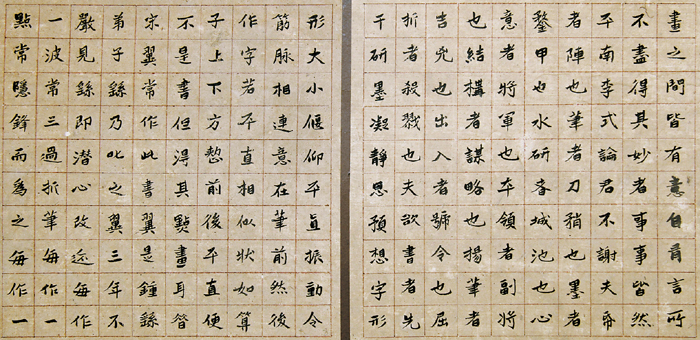 畫之間皆有意自有言所
不盡得其妙者事事皆然
平南李式論君不謝夫帋
者陣也筆者刀矟也墨者
鍪甲也水研者城池也心
意者將軍也夲領者副將
也結構者謀略也揚筆者
吉兇也出入者號令也屈
折者殺戮也夫欲書者先
干研墨凝靜思預想字形
形大小偃仰平直振動令
筋脉相連意在筆前然後
作字若平直相似狀如算
子上下方整前後平直便
不是書但得其點畫耳昝
宋翼常作此書翼是鍾繇
弟子繇乃叱之翼三年不
敢見繇即潛心改迹每作
一波常三過折筆每作一
點常隱鋒而為之每作一